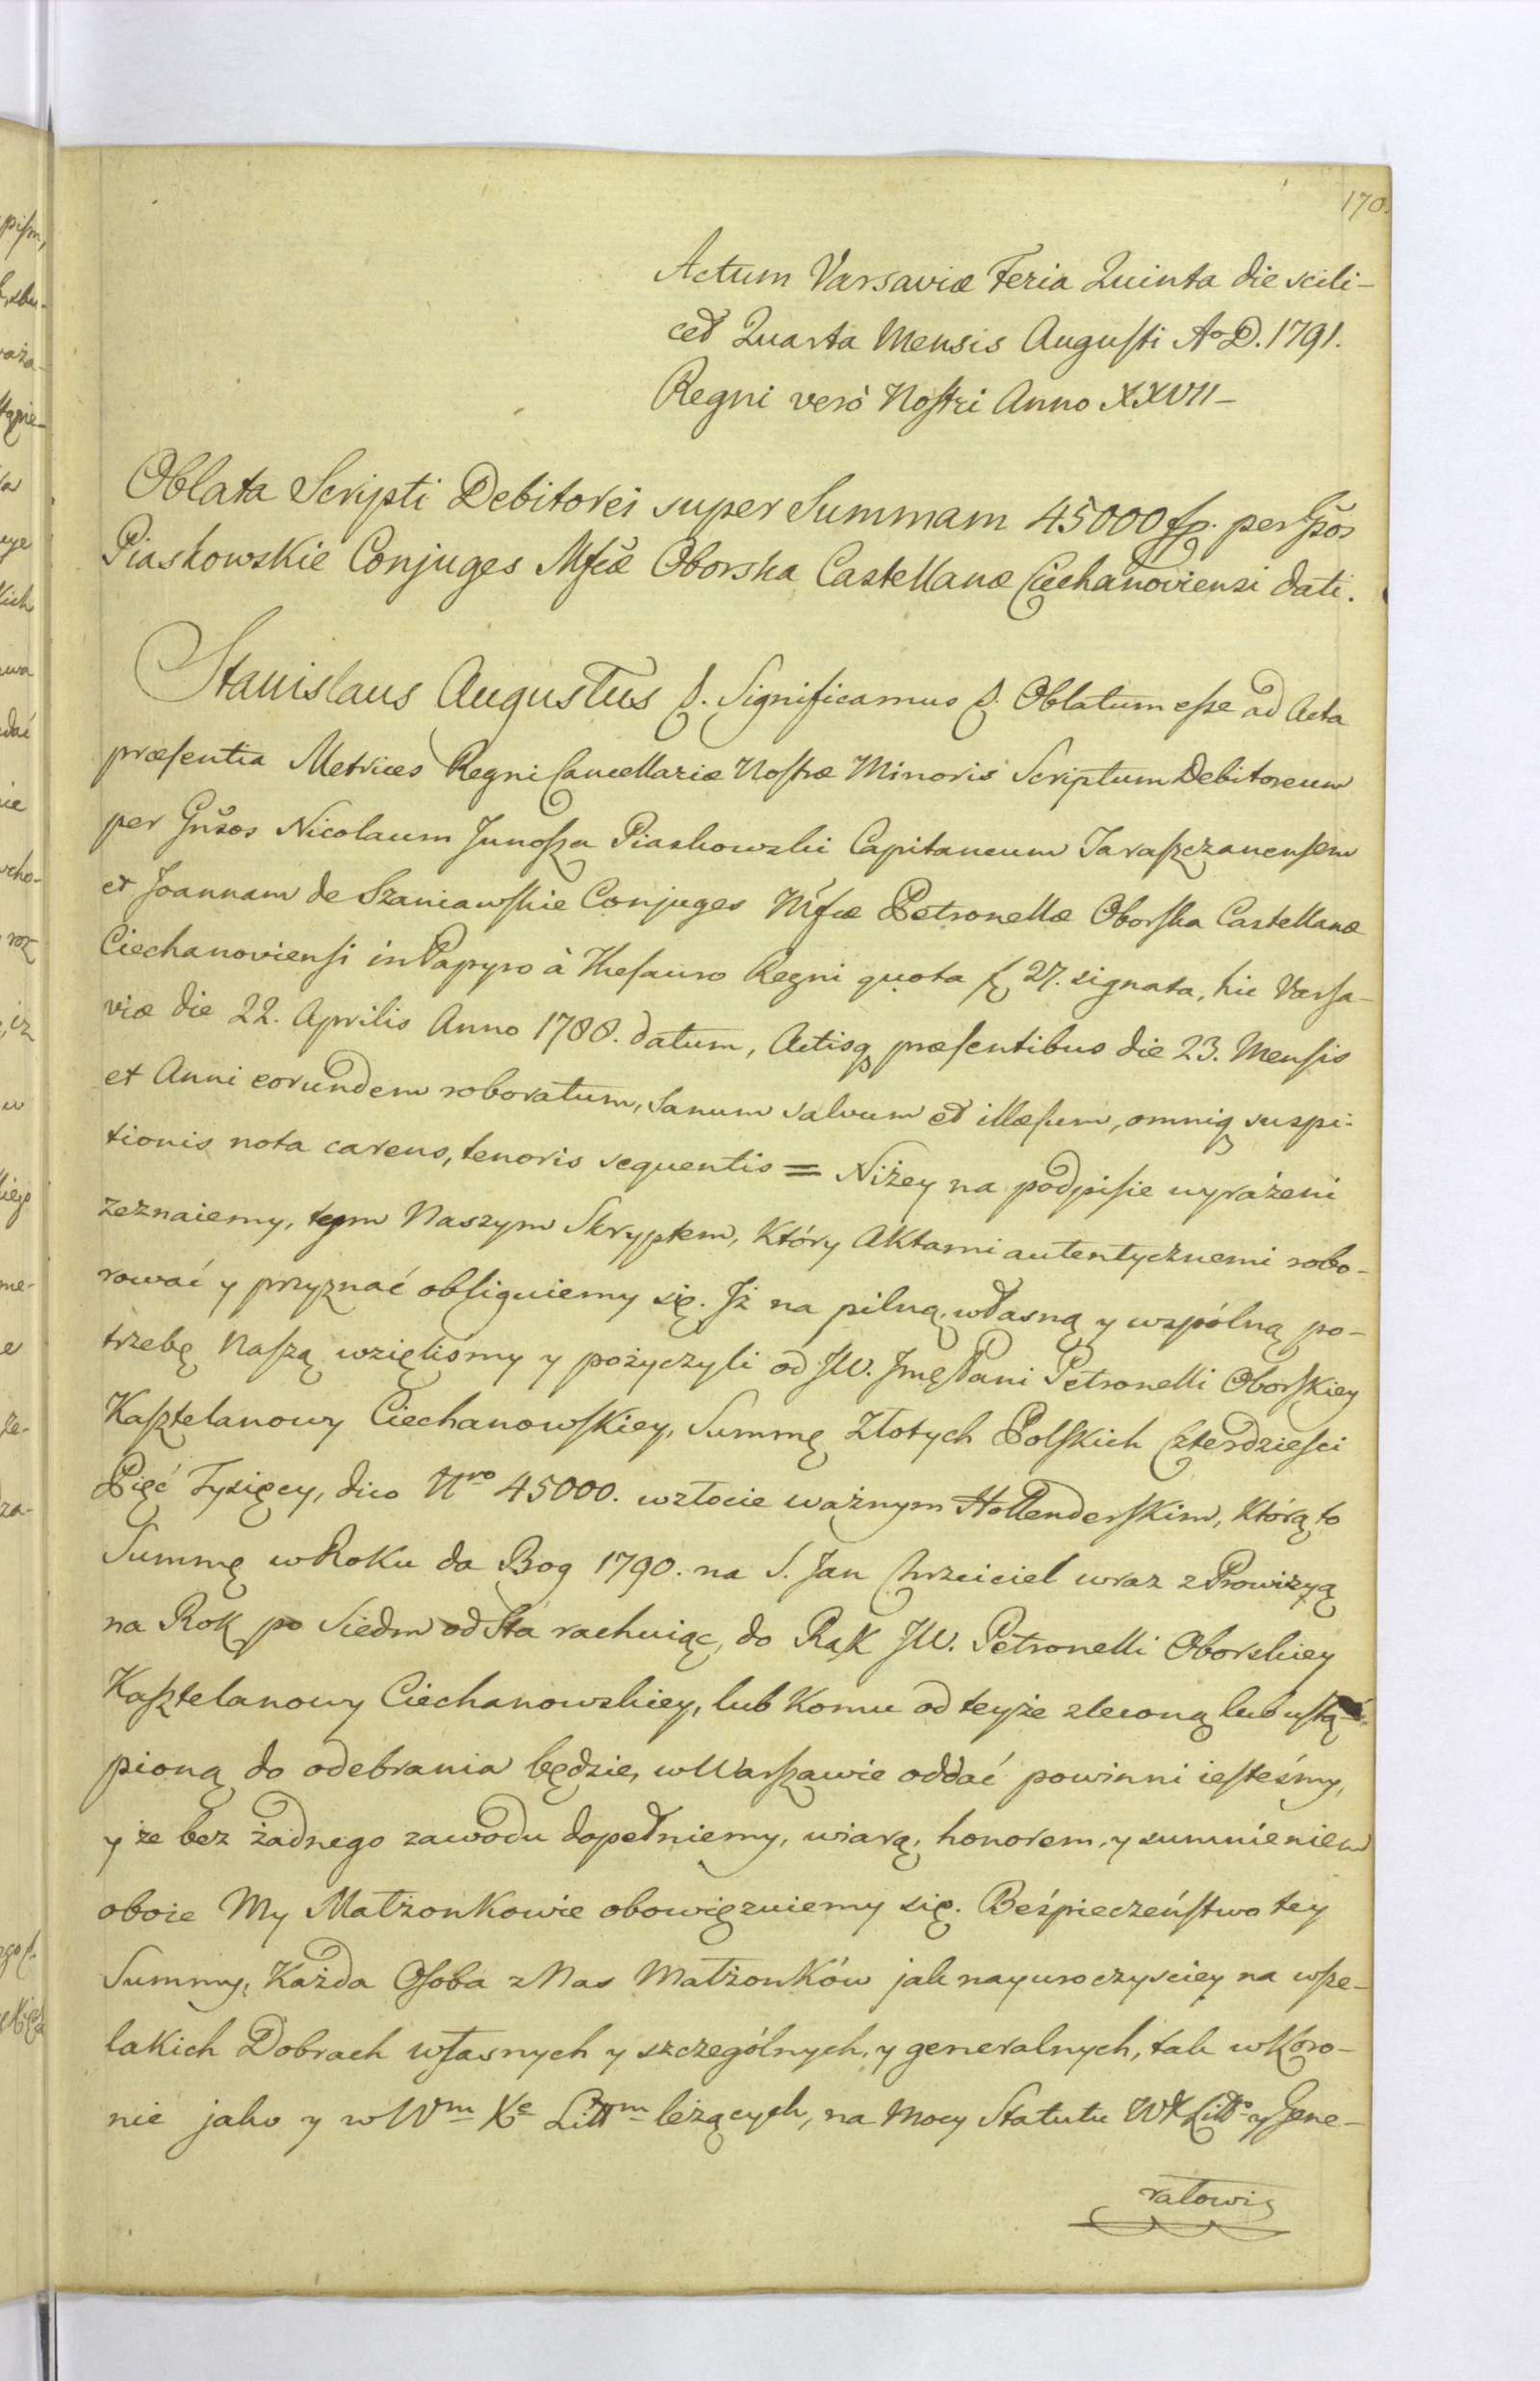 170.
Actum Varsaviæ Feria Quinta die scili-
cet Quarta Mensis Augusti Ao D. 1791.
Regni verò Nostri Anno XXVII-
Oblata Scripti Debitorei super Summam 45000 fp. per Gsos
Piaskowskie Conjuges Mfcæ Oborska Castellanæ Ciechanoviensi dati.
Stanislaus Augustus &. Significamus &. Oblatum esse ad Acta
præsentia Metrices Regni Cancellariæ Nostræ Minoris Scriptum Debitoreum
per Gnsos Nicolaum Junosza Piaskowski Capitaneum Taraszczanensem
et Joannam de Szaniawskie Conjuges Mfcæ Petronellæ Oborska Castellanæ
Ciechanoviensi in Papyro à Thesauro Regni quota f 27. signata, hic Varsa-
viæ die 22. Aprilis Anno 1788. datum, Actisq præsentibus die 23. Mensis
et Anni eorundem roboratum, sanum salvum et illæsum, omniq suspi-
tionis nota carens, tenoris sequentis = Niżey na podpisie wyrażeni
zeznaiemy, tym Naszym Skryptem, który Aktami autentycznemi robo-
rować y przyznać obliguiemy się. Jż na pilną, własną y wspólną po-
trzebę Naszą wzięlismy y pożyczyli od JW. Jmę Pani Petronelli Oborskiey
Kasztelanowy Ciechanowskiey, Summę Złotych Polskich Czterdziesci
Pięć Tysięcy, dico Nro 45000. w złocie ważnym Hollenderskim, którą to
Summę w Roku da Bog 1790. na S. Jan Chrzciciel wraz z Prowizyą
na Rok po Siedm od Sta rachuiąc, do Rąk JW. Petronelli Oborskiey
Kasztelanowy Ciechanowskiey, lub komu od teyże zleconą lub ustą-
pioną do odebrania będzie, w Warszawie oddać powinni iesteśmy,
y że bez żadnego zawodu dopełniemy, wiarą, honorem, y sumnieniem
oboie My Małżonkowie obowięzuiemy się. Beśpieczeństwo tey
Summy, Każda Osoba z Nas Małżonków jak nayuroczysciey na wsze-
lakich Dobrach własnych y szczególnych, y generalnych, tak w Koro-
nie jako y w Wm Xe Littm leżących, na mocy Statutu WX Litto y Gene-
ralowi